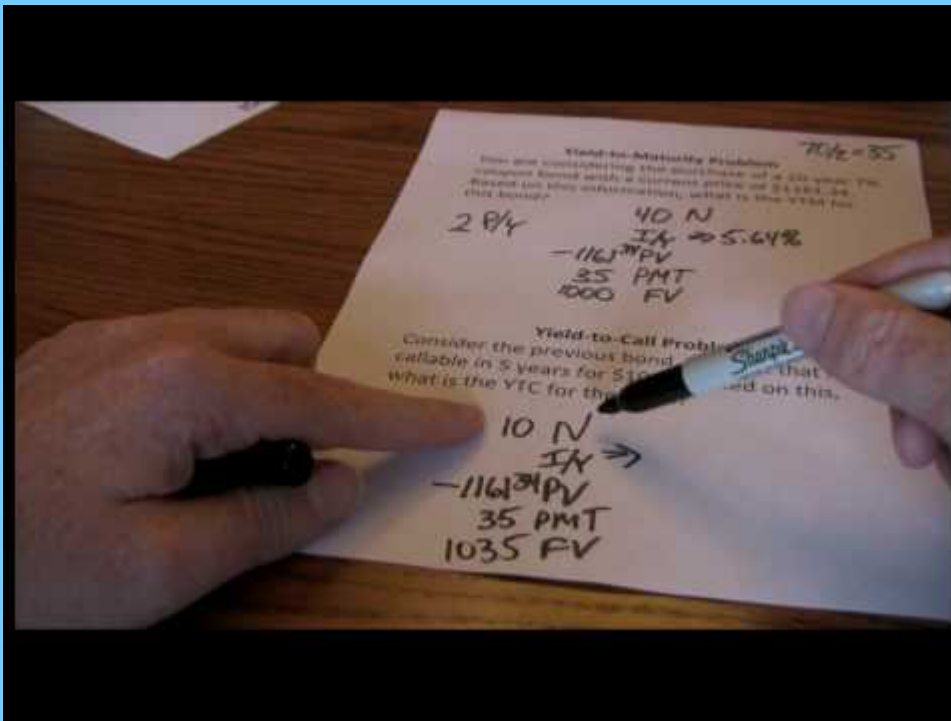 70/2=35
Yield-to-Maturity Problem
You are considering the purchase of a 20-year 7%
coupon bond with a current price of $1161.34.
Based on this information, what is the YTM for
this bond?
2 P/Y
40 N
I/Y ⇒ 5.64%
-1161³⁴ PV
35 PMT
1000 FV
Yield-to-Call
Consider the previous bond
callable in 5 years for that
what is the YTC for on this,
Sharpie
10 N
I/Y ⇒
-1161³⁴ PV
35 PMT
1035 FV